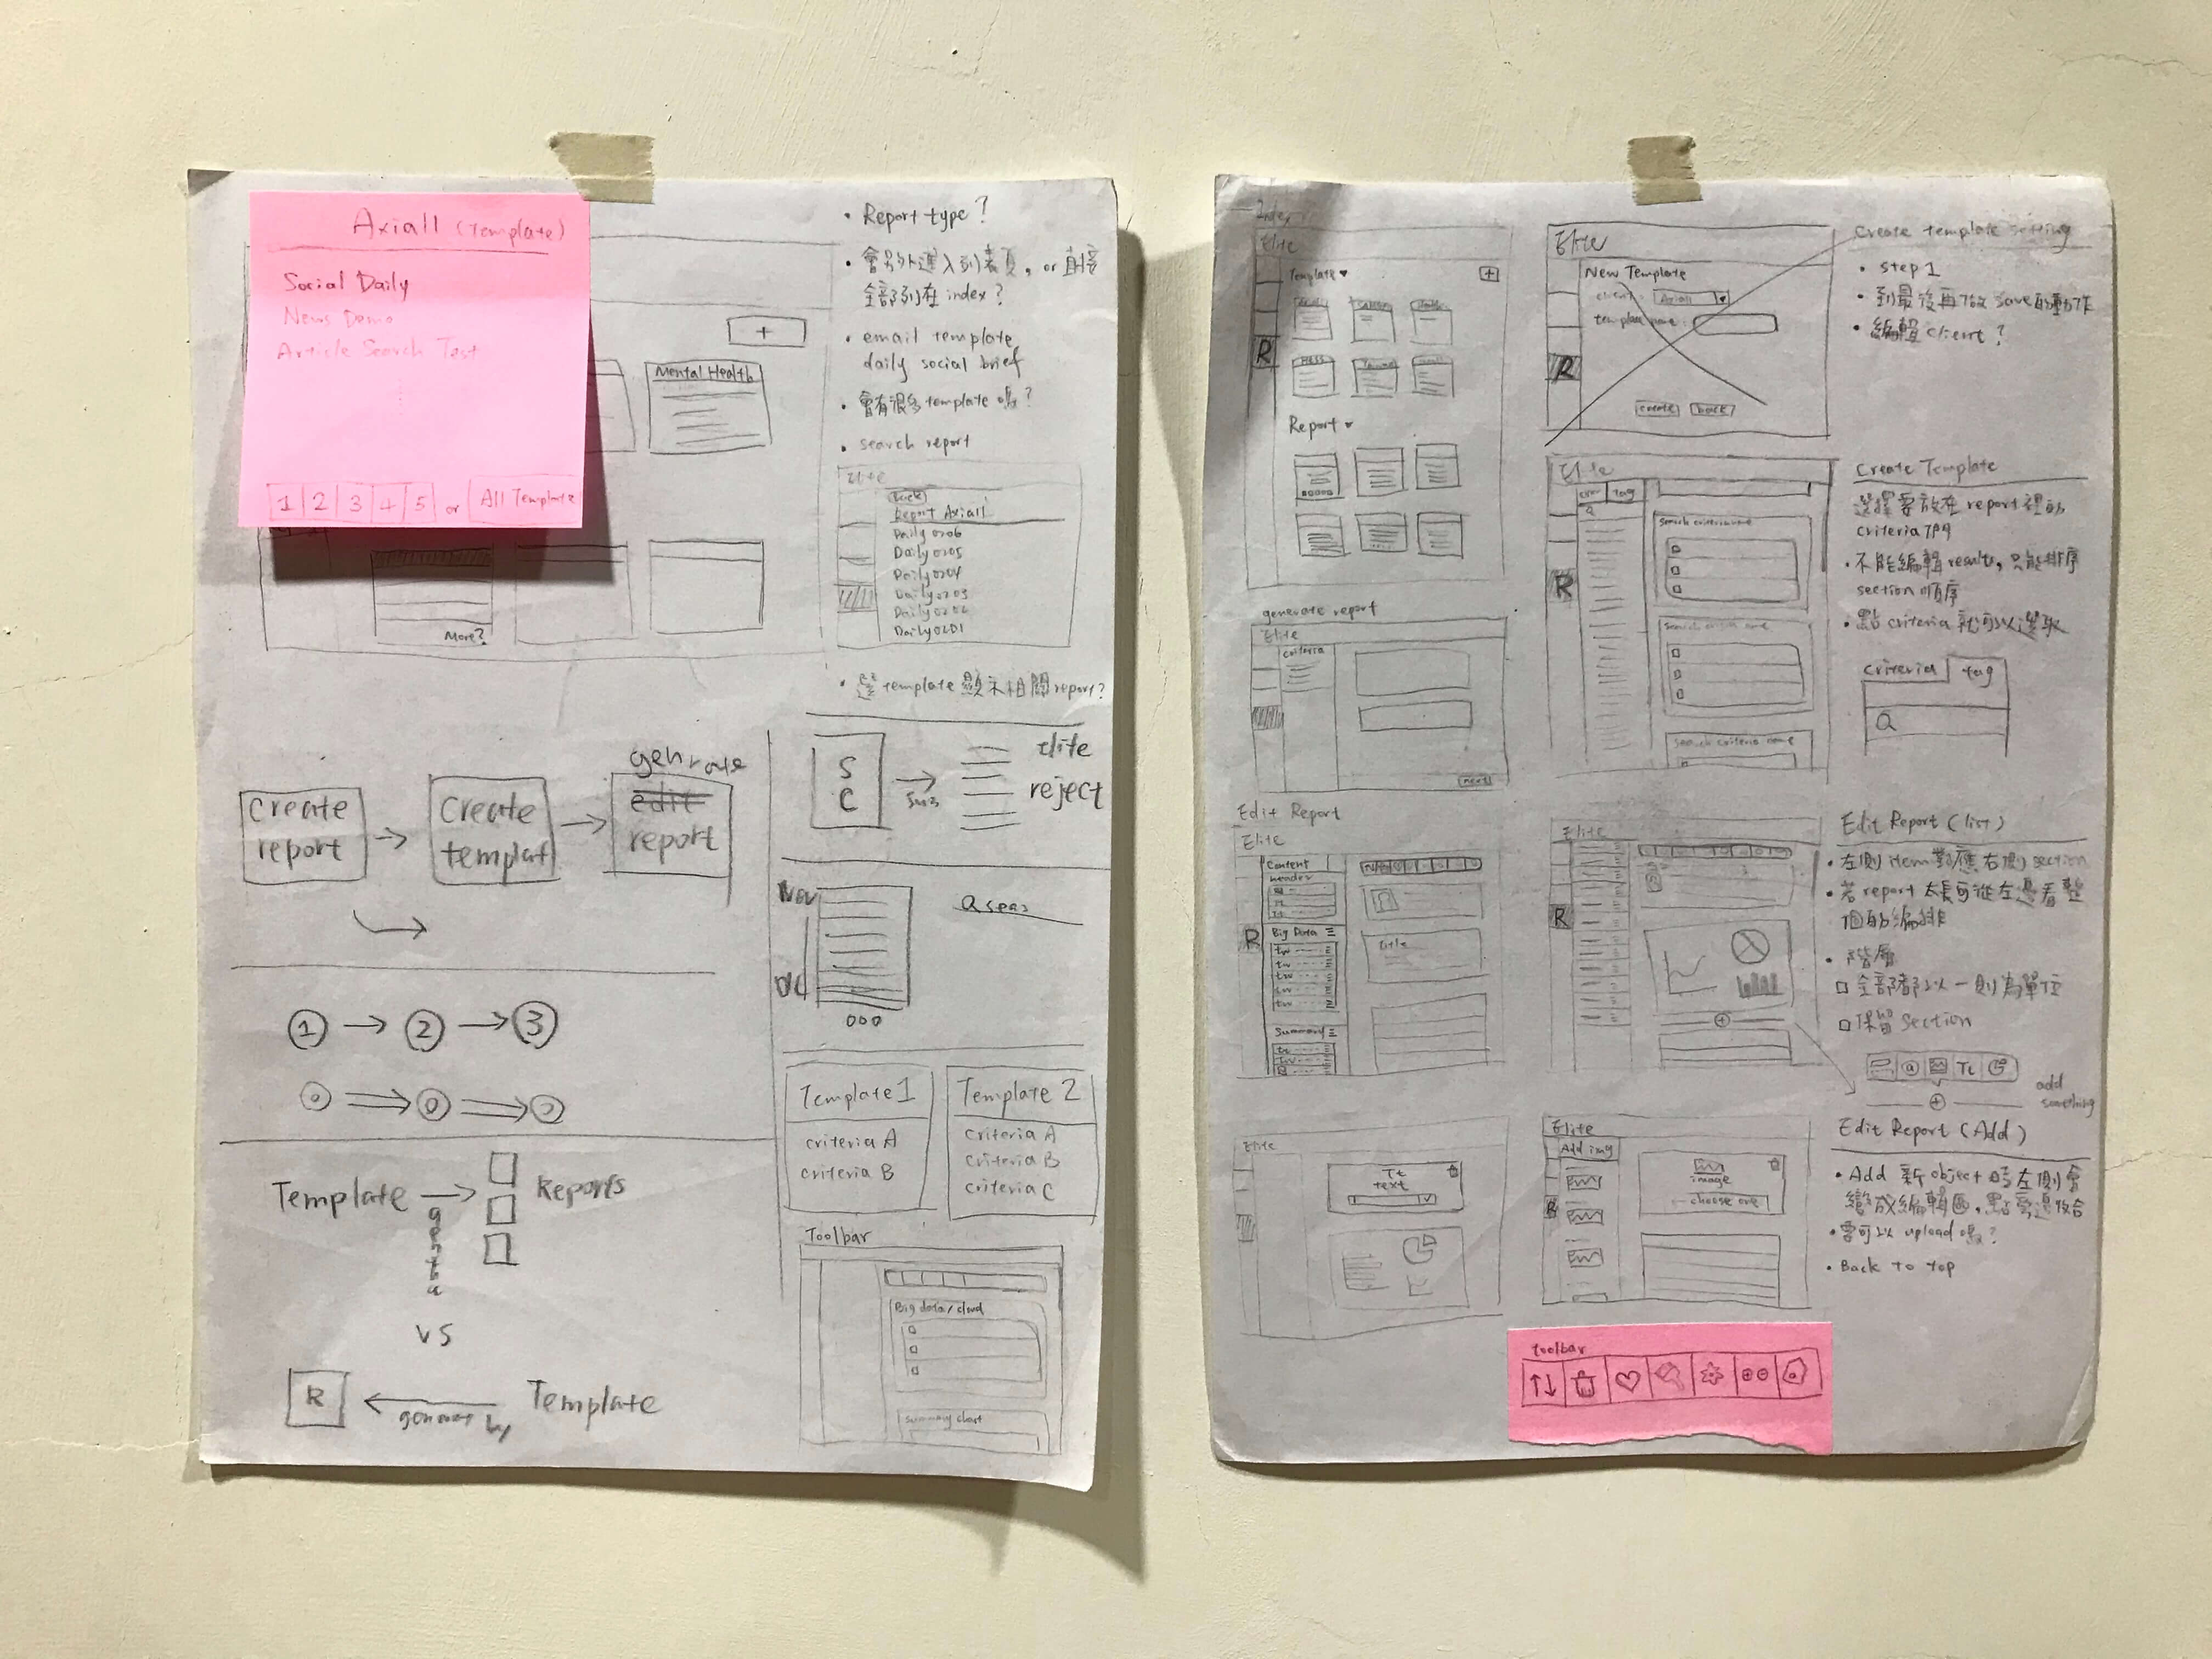 Axiall (Template)
Social Daily
News Demo
Article Search Test
1 2 3 4 5 or All Template
+
Mental Health
More?
• Report type?
• 會另外進入列表頁, or 直接
全部列在 index?
• email template
daily social brief
• 會有很多 template 嗎?
• search report
Elite
back
Report Axiall
Daily 0206
Daily 0205
Daily 0204
Daily 0203
Daily 0202
Daily 0201
• 選 template 顯示相關 report?
create
report
create
templat
genrate
edit
report
S
C
Elite
reject
1 2 3
Template
Reports
vs
R
Template
Template 1
criteria A
criteria B
Template 2
criteria A
criteria B
criteria C
Toolbar
Big data/cloud
summary chart
Index
Elite
Template
+
R
Report
Elite
New Template
client: Axiall
template name:
R
create back
Create template setting
• step 1
• 到最後再做 save 的動作
• 編輯 client?
generate report
Elite
criteria
next
Elite
tag
search criteria name
R
search criteria name
search criteria name
Create Template
選擇要放在 report 裡的
criteria 們
• 不能編輯 results, 只能排序
section 順序
• 點 criteria 就可以選取
criteria tag
Edit Report
Elite
Content
header
R
Big Data
Title
Summary
Elite
R
Edit Report (list)
• 左側 item 對應右側 section
• 若 report 太長可從左邊看整
個的編排
• 階層
□ 全部都以一則為單位
□ 保留 section
Tt
add
something
Elite
Tt
text
Elite
Add img
image
choose one
R
Edit Report (Add)
• Add 新 object 時左側會
變成編輯區, 點旁邊收合
• 需可以 upload 嗎?
• Back to top
toolbar